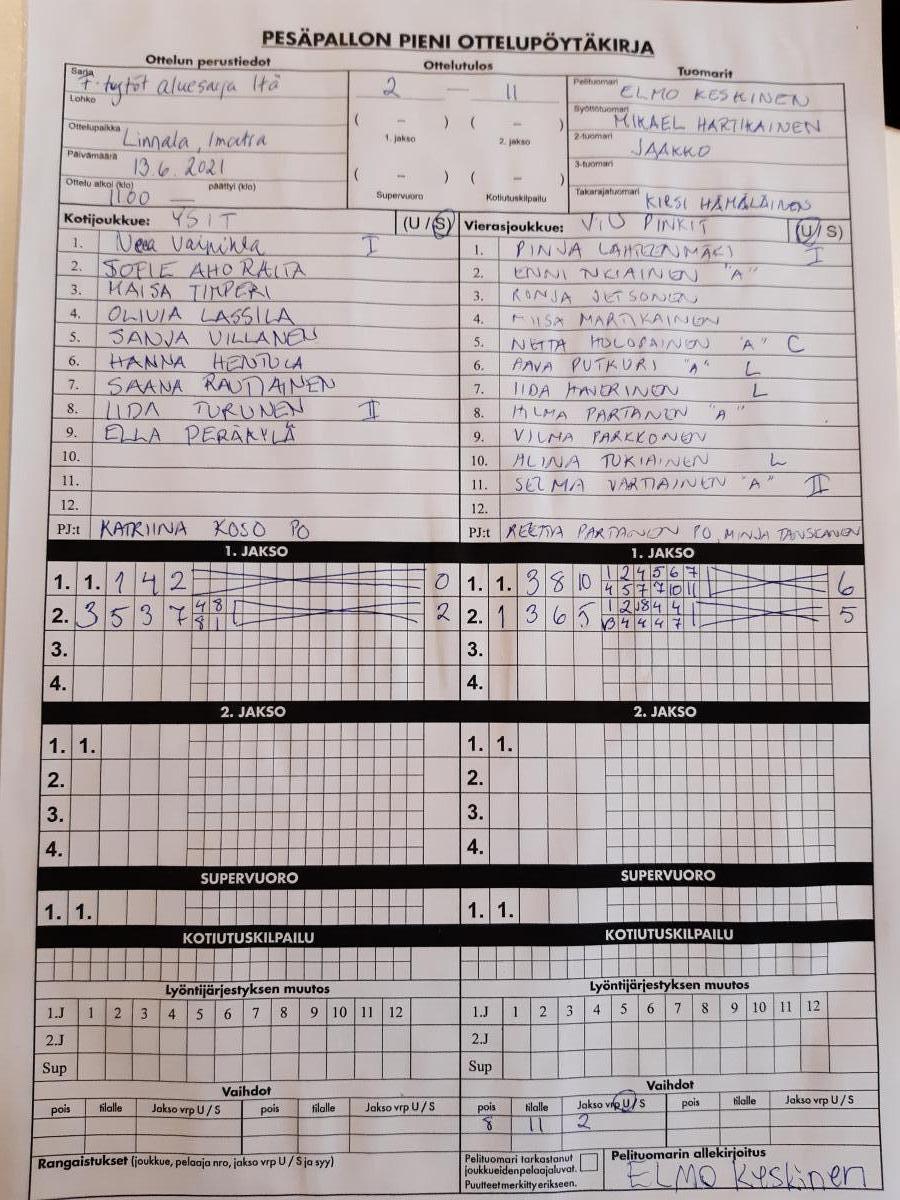 PESÄPALLON PIENI OTTELUPÖYTÄKIRJA
Ottelun perustiedot
Ottelutulos
Tuomarit
Sarja
F-tytöt aluesarja Itä
Lohko
Ottelupaikka
Linnala, Imatra
Päivämäärä
13.6.2021
Ottelu alkoi (klo) päättyi (klo)
1100 —
2 — 11
( – ) ( – )
1. jakso 2. jakso
( – ) ( – )
Supervuoro Kotiutuskilpailu
Pelituomari
ELMO KESKINEN
Syöttötuomari
MIKAEL HARTIKAINEN
2-tuomari
JAAKKO
3-tuomari
Takarajatuomari
KIRSI HÄMÄLÄINEN
Kotijoukkue: YSIT (U / S)
1. I
2. SOFIE AHORALTA
3. MAISA TIMPERI
4. OLIVIA LASSILA
5. SANJA VILLANEN
6. HANNA HENTULA
7. SAANA RAUTIAINEN
8. IIDA TURUNEN II
9. ELLA PERÄKYLÄ
10.
11.
12.
PJ:t KATRIINA KOSO PO
Vierasjoukkue: ViU PINKIT (U / S)
1. PINJA LAHTEENMÄKI I
2. ENNI "A"
3. RONJA JETSONEN
4. MARTIKAINEN
5. NETTA HOLOPAINEN "A" C
6. AAVA PUTKURI "A" L
7. IIDA HAVERINEN L
8. HILMA PARTANEN "A"
9. VILMA PARKKONEN
10. ALINA TUKIAINEN L
11. SELMA VARTIAINEN "A" II
12.
PJ:t REETTA PARTANEN PO, MINJA TANSKANEN
1. JAKSO
1. 1. 1 4 2 0
2. 3 5 3 7 4 8 2
8 1
3.
4.
1. JAKSO
1. 1. 3 8 10 1 2 4 5 6 7 6
4 5 7 7 10 11
2. 1 3 6 5 5
3.
4.
2. JAKSO
1. 1.
2.
3.
4.
2. JAKSO
1. 1.
2.
3.
4.
SUPERVUORO
1. 1.
SUPERVUORO
1. 1.
KOTIUTUSKILPAILU
KOTIUTUSKILPAILU
Lyöntijärjestyksen muutos
1.J 1 2 3 4 5 6 7 8 9 10 11 12
2.J
Sup
Lyöntijärjestyksen muutos
1.J 1 2 3 4 5 6 7 8 9 10 11 12
2.J
Sup
Vaihdot
pois tilalle Jakso vrp U / S pois tilalle Jakso vrp U / S
Vaihdot
pois tilalle Jakso vrp U / S pois tilalle Jakso vrp U / S
8 11 2
Rangaistukset (joukkue, pelaaja nro, jakso vrp U / S ja syy)
Pelituomari tarkastanut
joukkueiden pelaajaluvat.
Puutteet merkitty erikseen.
Pelituomarin allekirjoitus
ELMO Keskinen